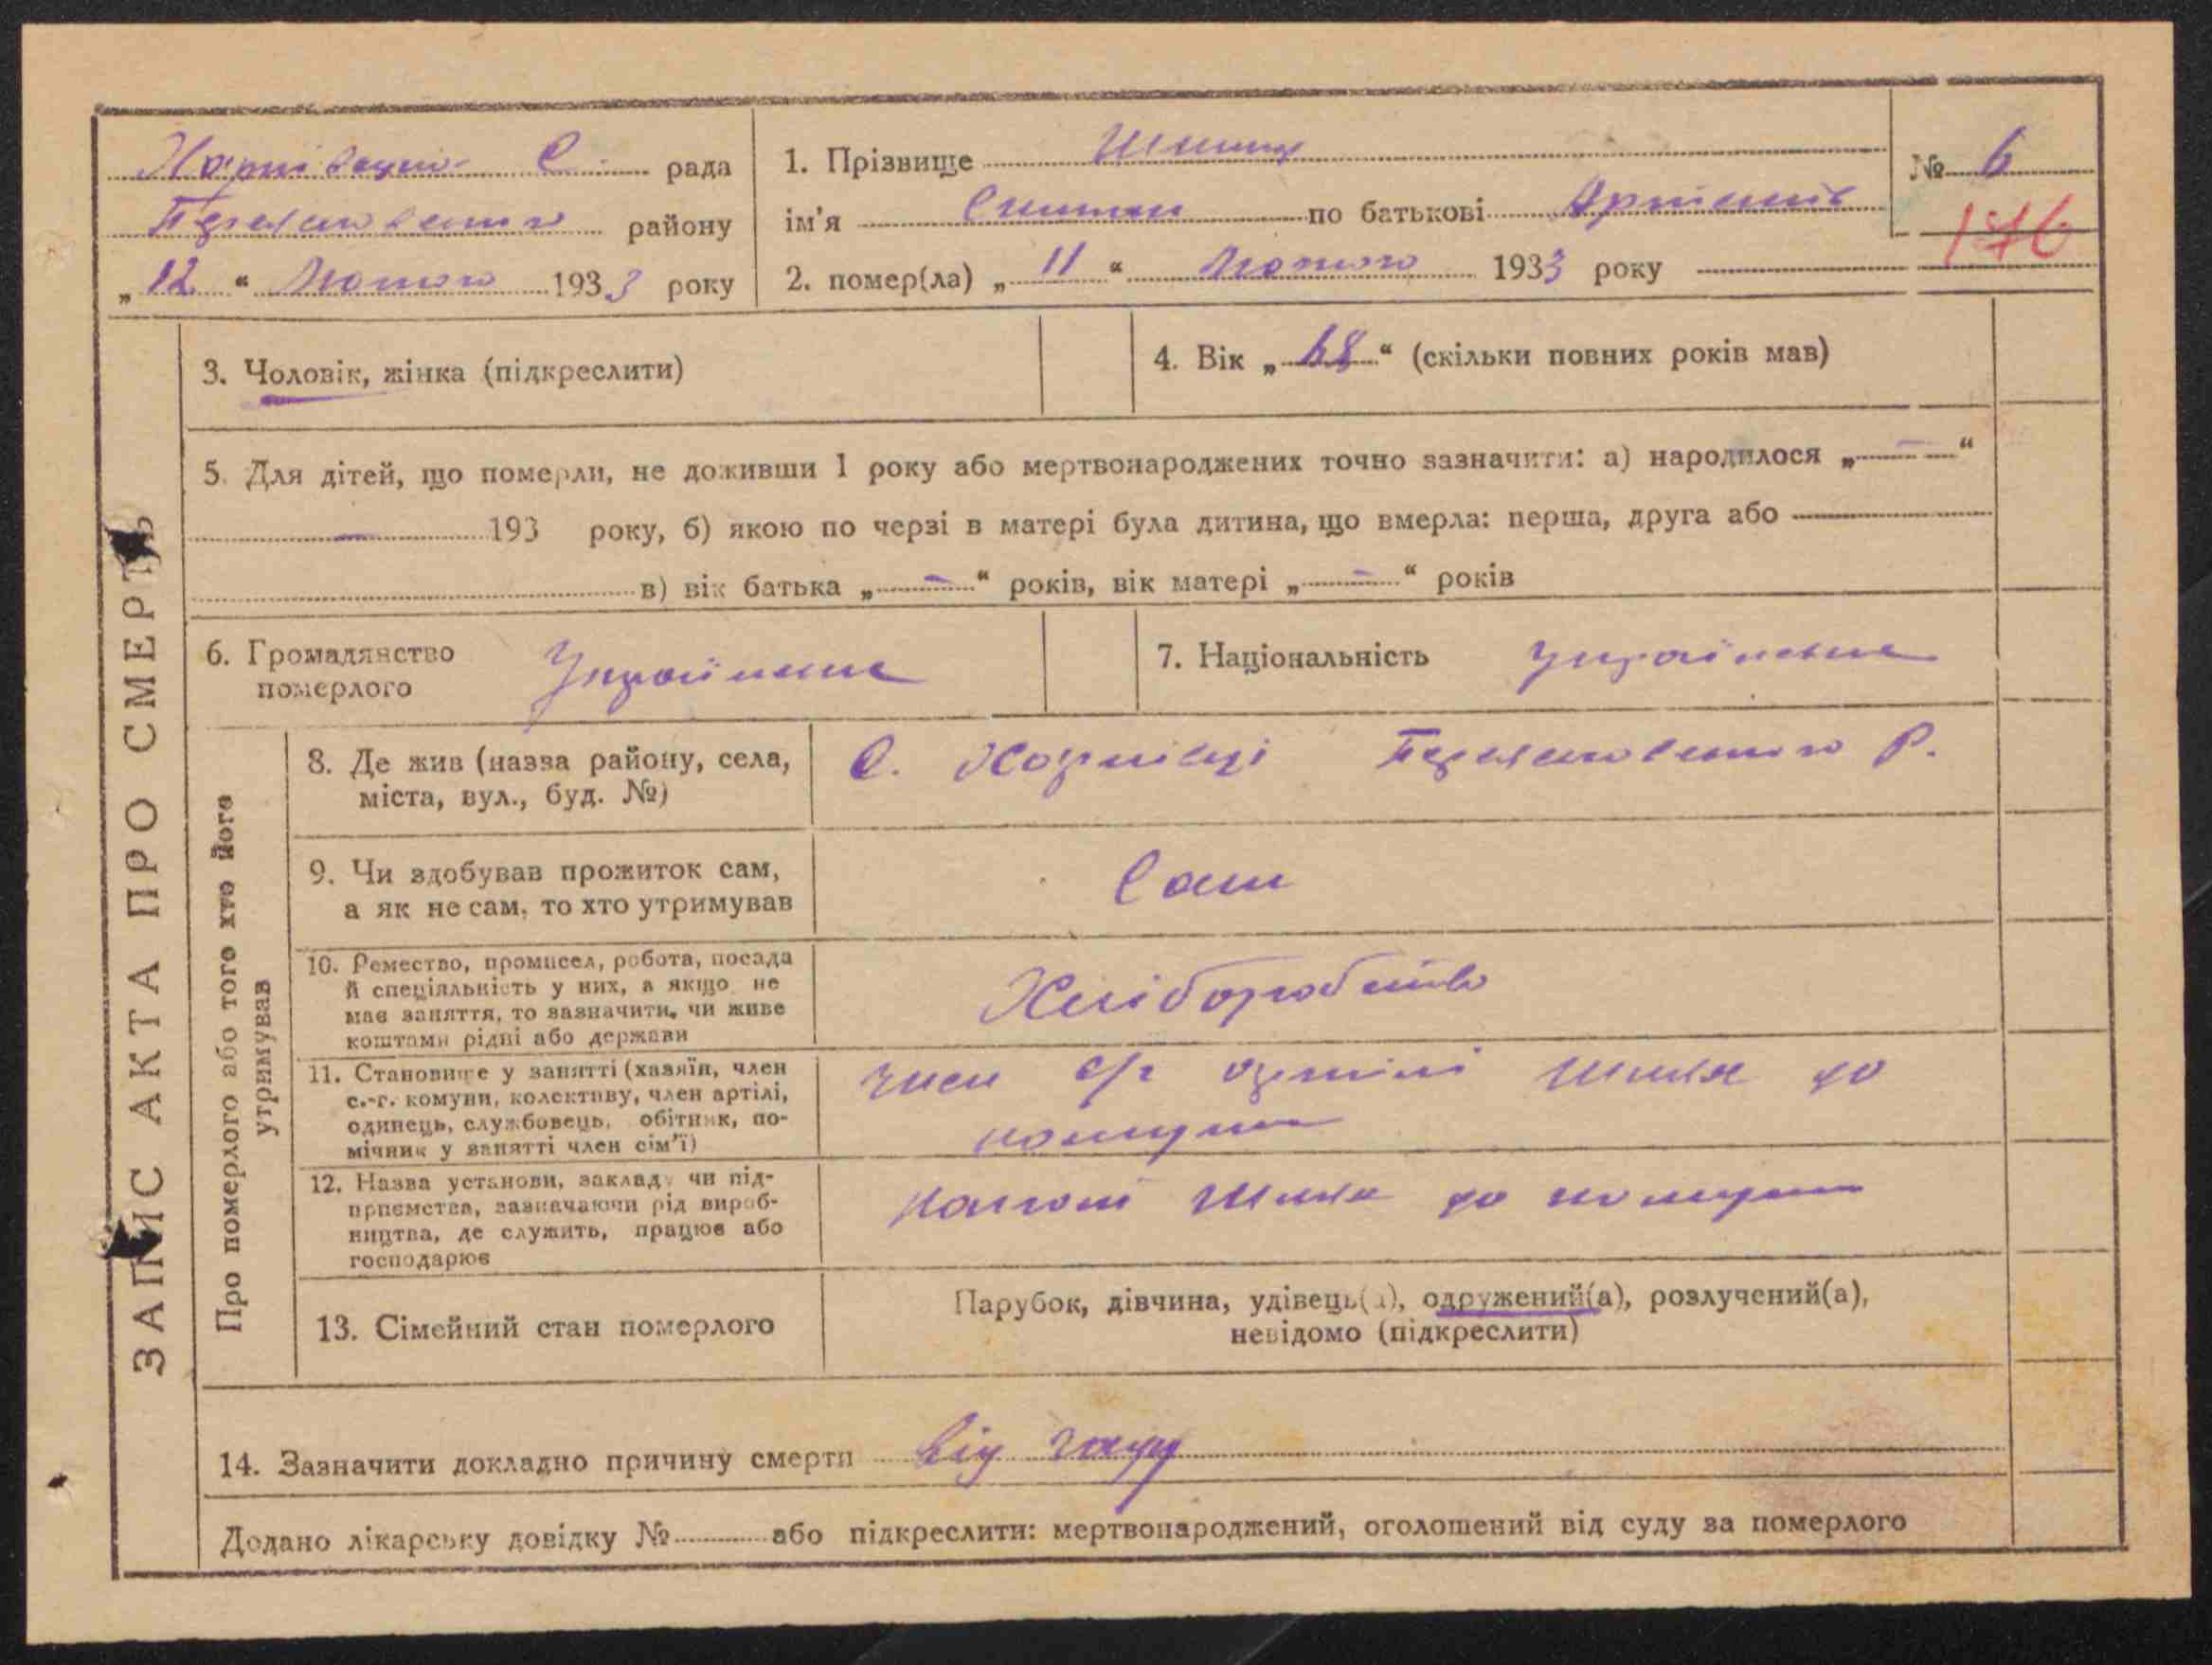 С. рада
району
„12“ Лютого 1933 року
1. Прізвище
ім'я по батькові
2. помер(ла) „11“ Лютого 1933 року
№ 6
ЗАПИС АКТА ПРО СМЕРТЬ
3. Чоловік, жінка (підкреслити)
4. Вік „68“ (скільки повних років мав)
5. Для дітей, що померли, не доживши 1 року або мертвонароджених точно зазначити: а) народилося „—“
— 193 року, б) якою по черзі в матері була дитина, що вмерла: перша, друга або
в) вік батька „—“ років, вік матері „—“ років
6. Громадянство
померлого
Українське
7. Національність Українське
Про померлого або того хто його
утримував
8. Де жив (назва району, села,
міста, вул., буд. №)
С. Р.
9. Чи здобував прожиток сам,
а як не сам, то хто утримував
Сам
10. Ремество, промисел, робота, посада
й спеціяльність у них, а якщо не
має заняття, то зазначити, чи живе
коштами рідні або держави
Хліборобство
11. Становище у занятті (хазяїн, член
с.-г. комуни, колективу, член артілі,
одинець, службовець, обітник, по-
мічник у занятті член сім'ї)
член с/г артілі Шлях до
комуни
12. Назва установи, закладу чи під-
приємства, зазначаючи рід вироб-
ництва, де служить, працює або
господарює
Колгосп Шлях до комуни
13. Сімейний стан померлого
Парубок, дівчина, удівець(а), одружений(а), розлучений(а),
невідомо (підкреслити)
14. Зазначити докладно причину смерти від
Додано лікарську довідку № або підкреслити: мертвонароджений, оголошений від суду за померлого